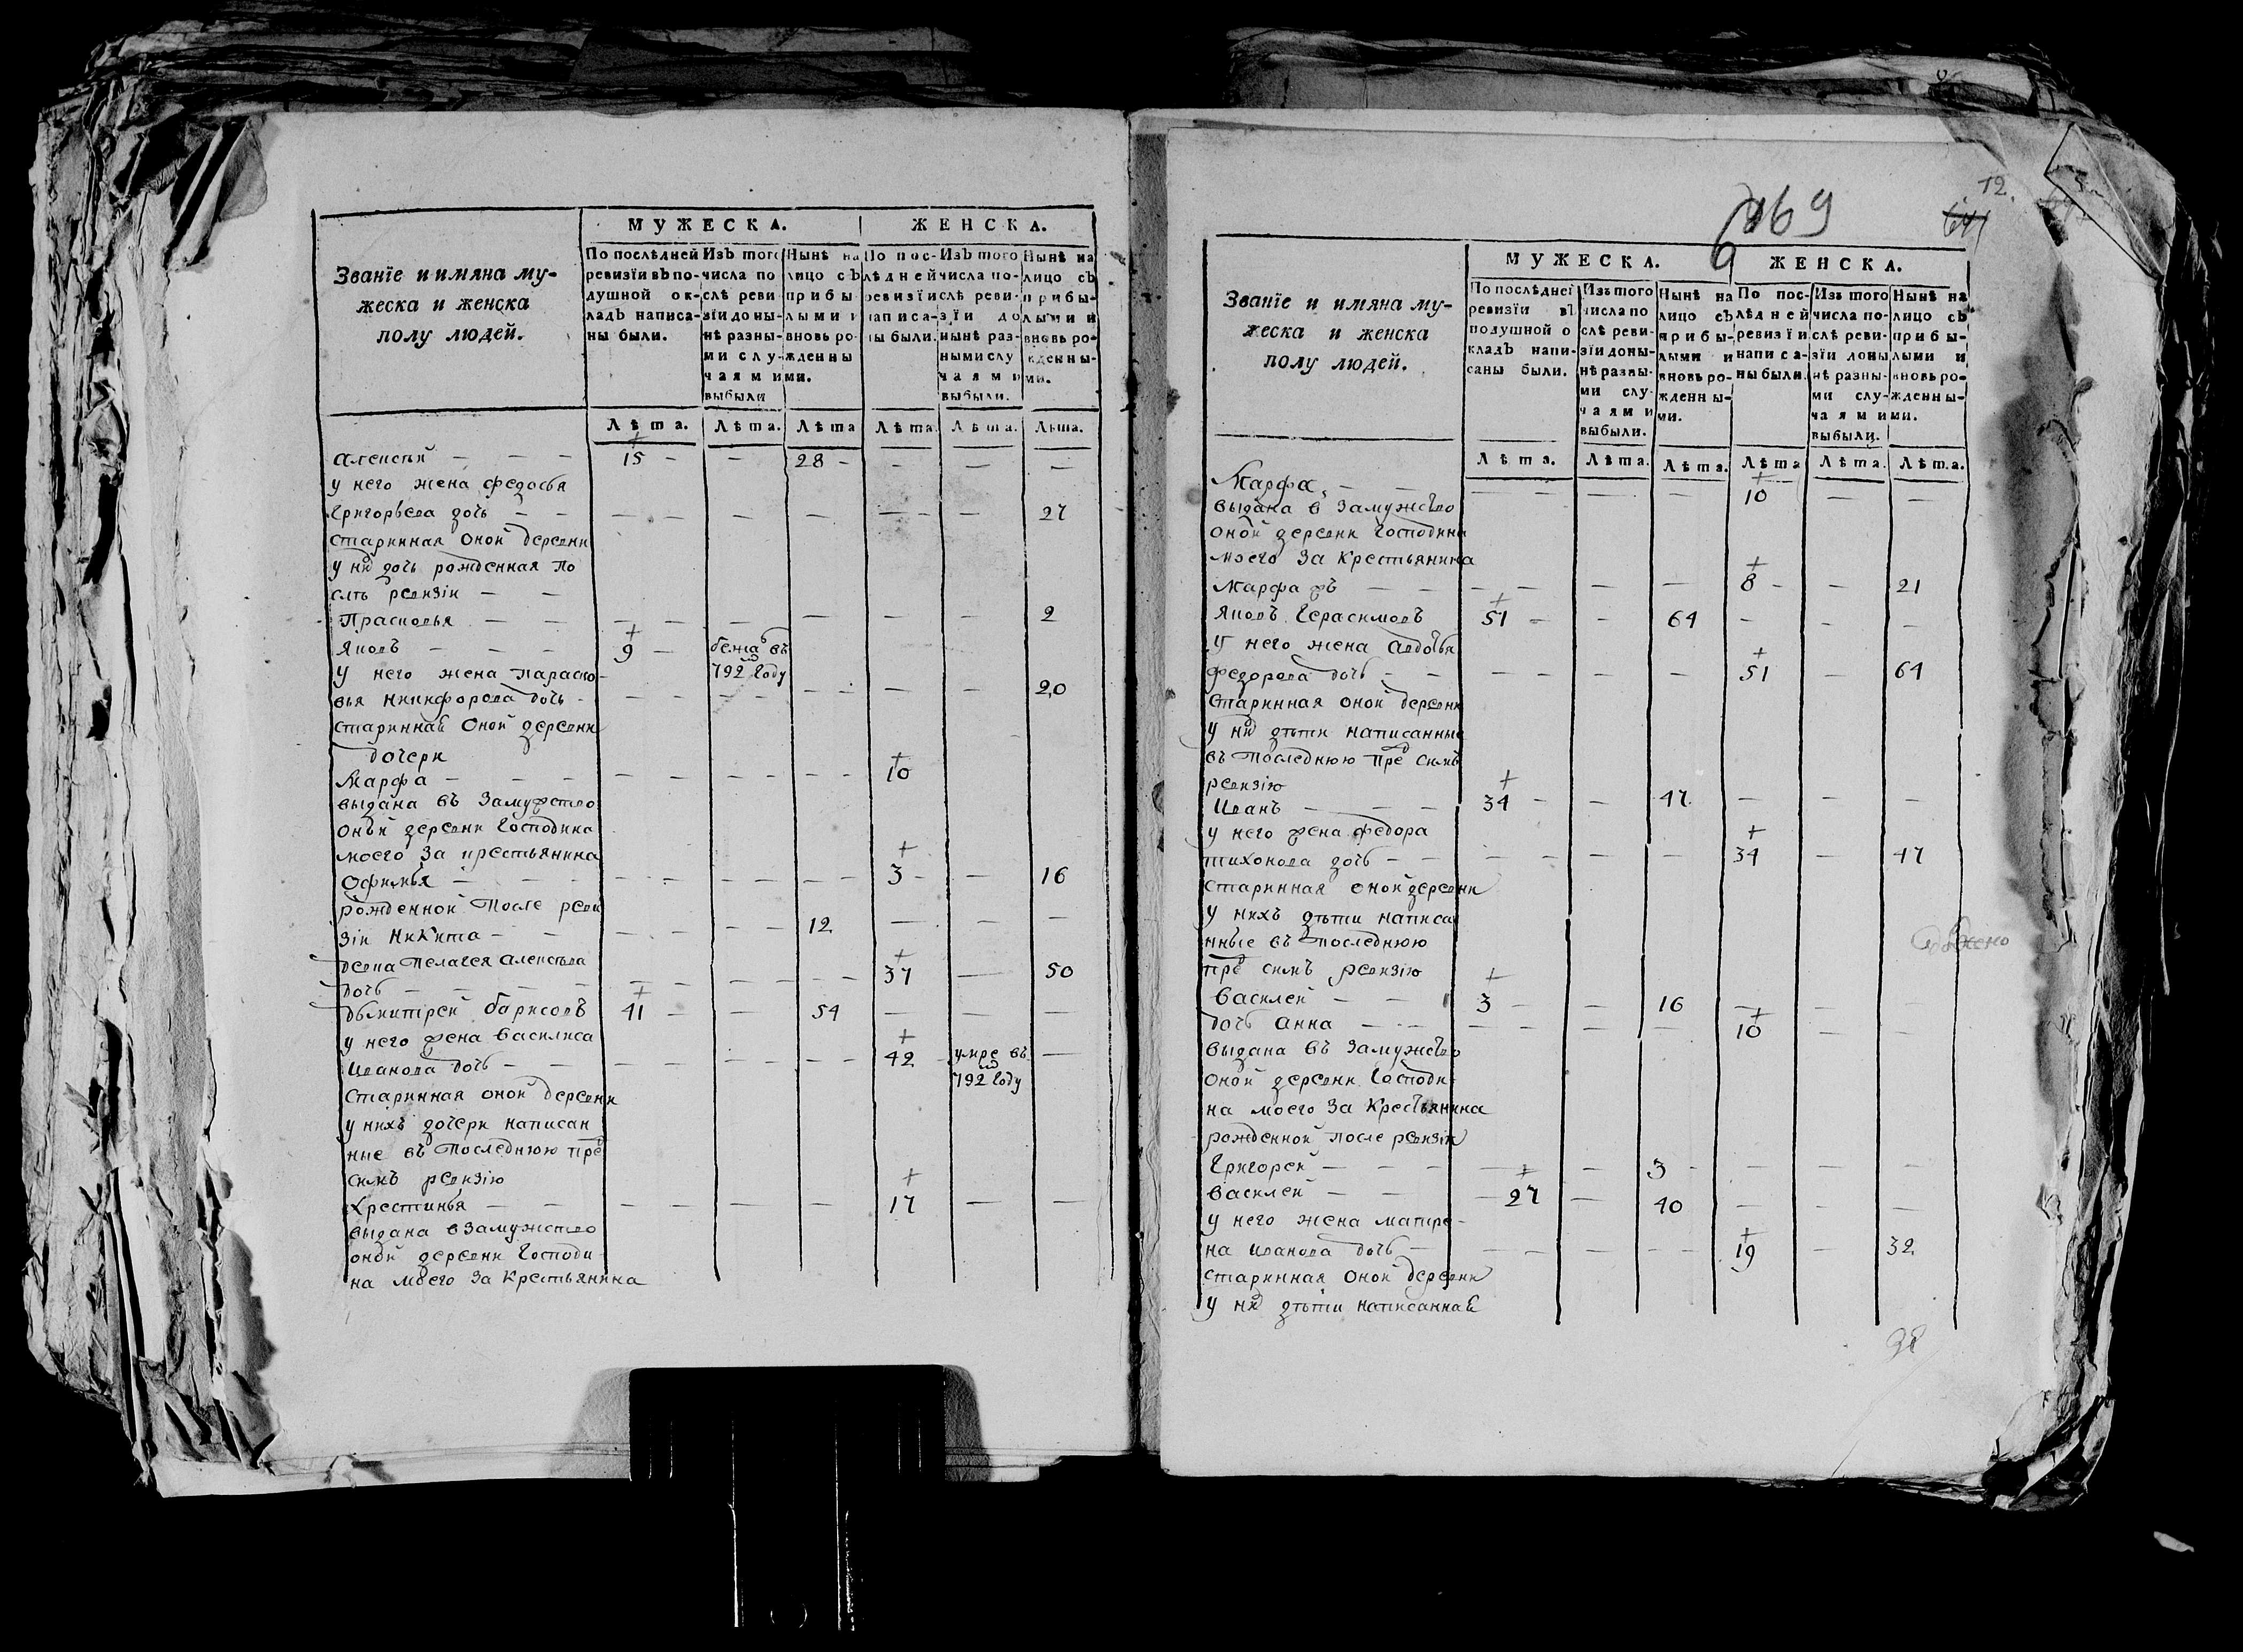 МУЖЕСКА. ЖЕНСКА.
Званїе и имяна му-
жеска и женска
полу людей.
По послѣдней
ревизїи въ по-
душной ок-
ладъ написа-
ны были.
Изъ того
числа по
слѣ реви
зїи до ны-
нѣ разны-
ми слу-
чаями
выбыли
Нынѣ на
лицо съ
прибы
лыми и
вновь ро
жденны
ми.
По пос-
лѣдней
ревизїи
написа-
ны были.
Изъ того
числа по-
слѣ реви-
зїи до
нынѣ раз-
ными слу
чаями
выбыли.
Нынѣ на
лицо съ
прибы-
лыми и
вновь ро-
жденны-
ми.
Лѣта. Лѣта. Лѣта Лѣта. Лѣта. Лѣта.
Алексѣй — — — 15 — — 28 — — — —
у него жена федосья
Григорьева дочь — — — — — — — — — 27
старинная оной деревни
у них дочь рожденная по
слѣ ревизіи — —
Прасковья — — — — — — — — 2
Яковъ — — — 9 — бежа въ
792м году
У него жена параско-
вья никифорова дочь - — — — — — — — — 20
стариннаѣ оной деревни
дочери
Марфа — — — — — — — — — 10
выдана въ замужство
оной деревни Господина
моего за крестьянина
Офимья — — — — — — — — — 3 — — 16
рожденной после реви
зіи Никита — — — — — — 12 — — —
вдова Пелагея алексѣева
дочь — — — — — — — — — 37 — 50
дьмитрей барисовъ 41 — — 54 — — —
у него жена василиса
Иванова дочь — — — — — — — — 42 умре въ —
792м году
старинная оной деревни
у нихъ дочери написан
ные въ последнюю пред
симъ ревизію
Хрестинья — — — — — — 17 — —
выдана в замужство
оной деревни Господи-
на моего за крестьянина
169
12.
МУЖЕСКА. ЖЕНСКА.
Званїе и имяна му-
жеска и женска
полу людей.
По послѣдней
ревизїи въ
подушной о
кладъ напи-
саны были.
Изъ того
числа по
слѣ реви-
зїи до ны-
нѣ разны-
ми слу-
чаями
выбыли.
Нынѣ на
лицо съ
прибы-
лыми и
вновь ро-
жденны-
ми.
По пос-
лѣдней
ревизїи
написа-
ны были.
Изъ того
числа по-
слѣ реви-
зїи доны
нѣ разны-
ми слу-
чаями
выбыли.
Нынѣ на
лицо съ
прибы-
лыми и
вновь ро-
жденны-
ми.
Лѣта. Лѣта. Лѣта. Лѣта Лѣта. Лѣта.
Марфа — — — — — — 10 — —
выдана в замужство
оной деревни Господина
моего за крестьянина
Марфа — — — — — — 8 - — 21
Яковъ Герасимовъ 51 — — 64 — — —
У него жена авдотья
федорова дочь — — — — — — 51 — 64
старинная оной деревни
у них дѣти написанные
въ последнюю пред симъ
ревизію
Иванъ — — — 34 — — 47 — — —
у него жена федора
тихонова дочь — — — — — — 34 — 47
старинная оной деревни
у нихъ дѣти написа
нные въ последнюю
пред симъ ревизію
Василей — — 3 — — 16 — — —
дочь Анна — — — — — — 10 — —
выдана въ замужство
оной деревни Господи-
на моего за крестьянина
рожденной после ревизіи
Григорей — — — — — — 3 - — — —
василей — — — 27 — 40 — — —
у него жена матре-
на иванова дочь — — — — — — 19 — 32
старинная оной деревни
у них дѣти написаннаѣ